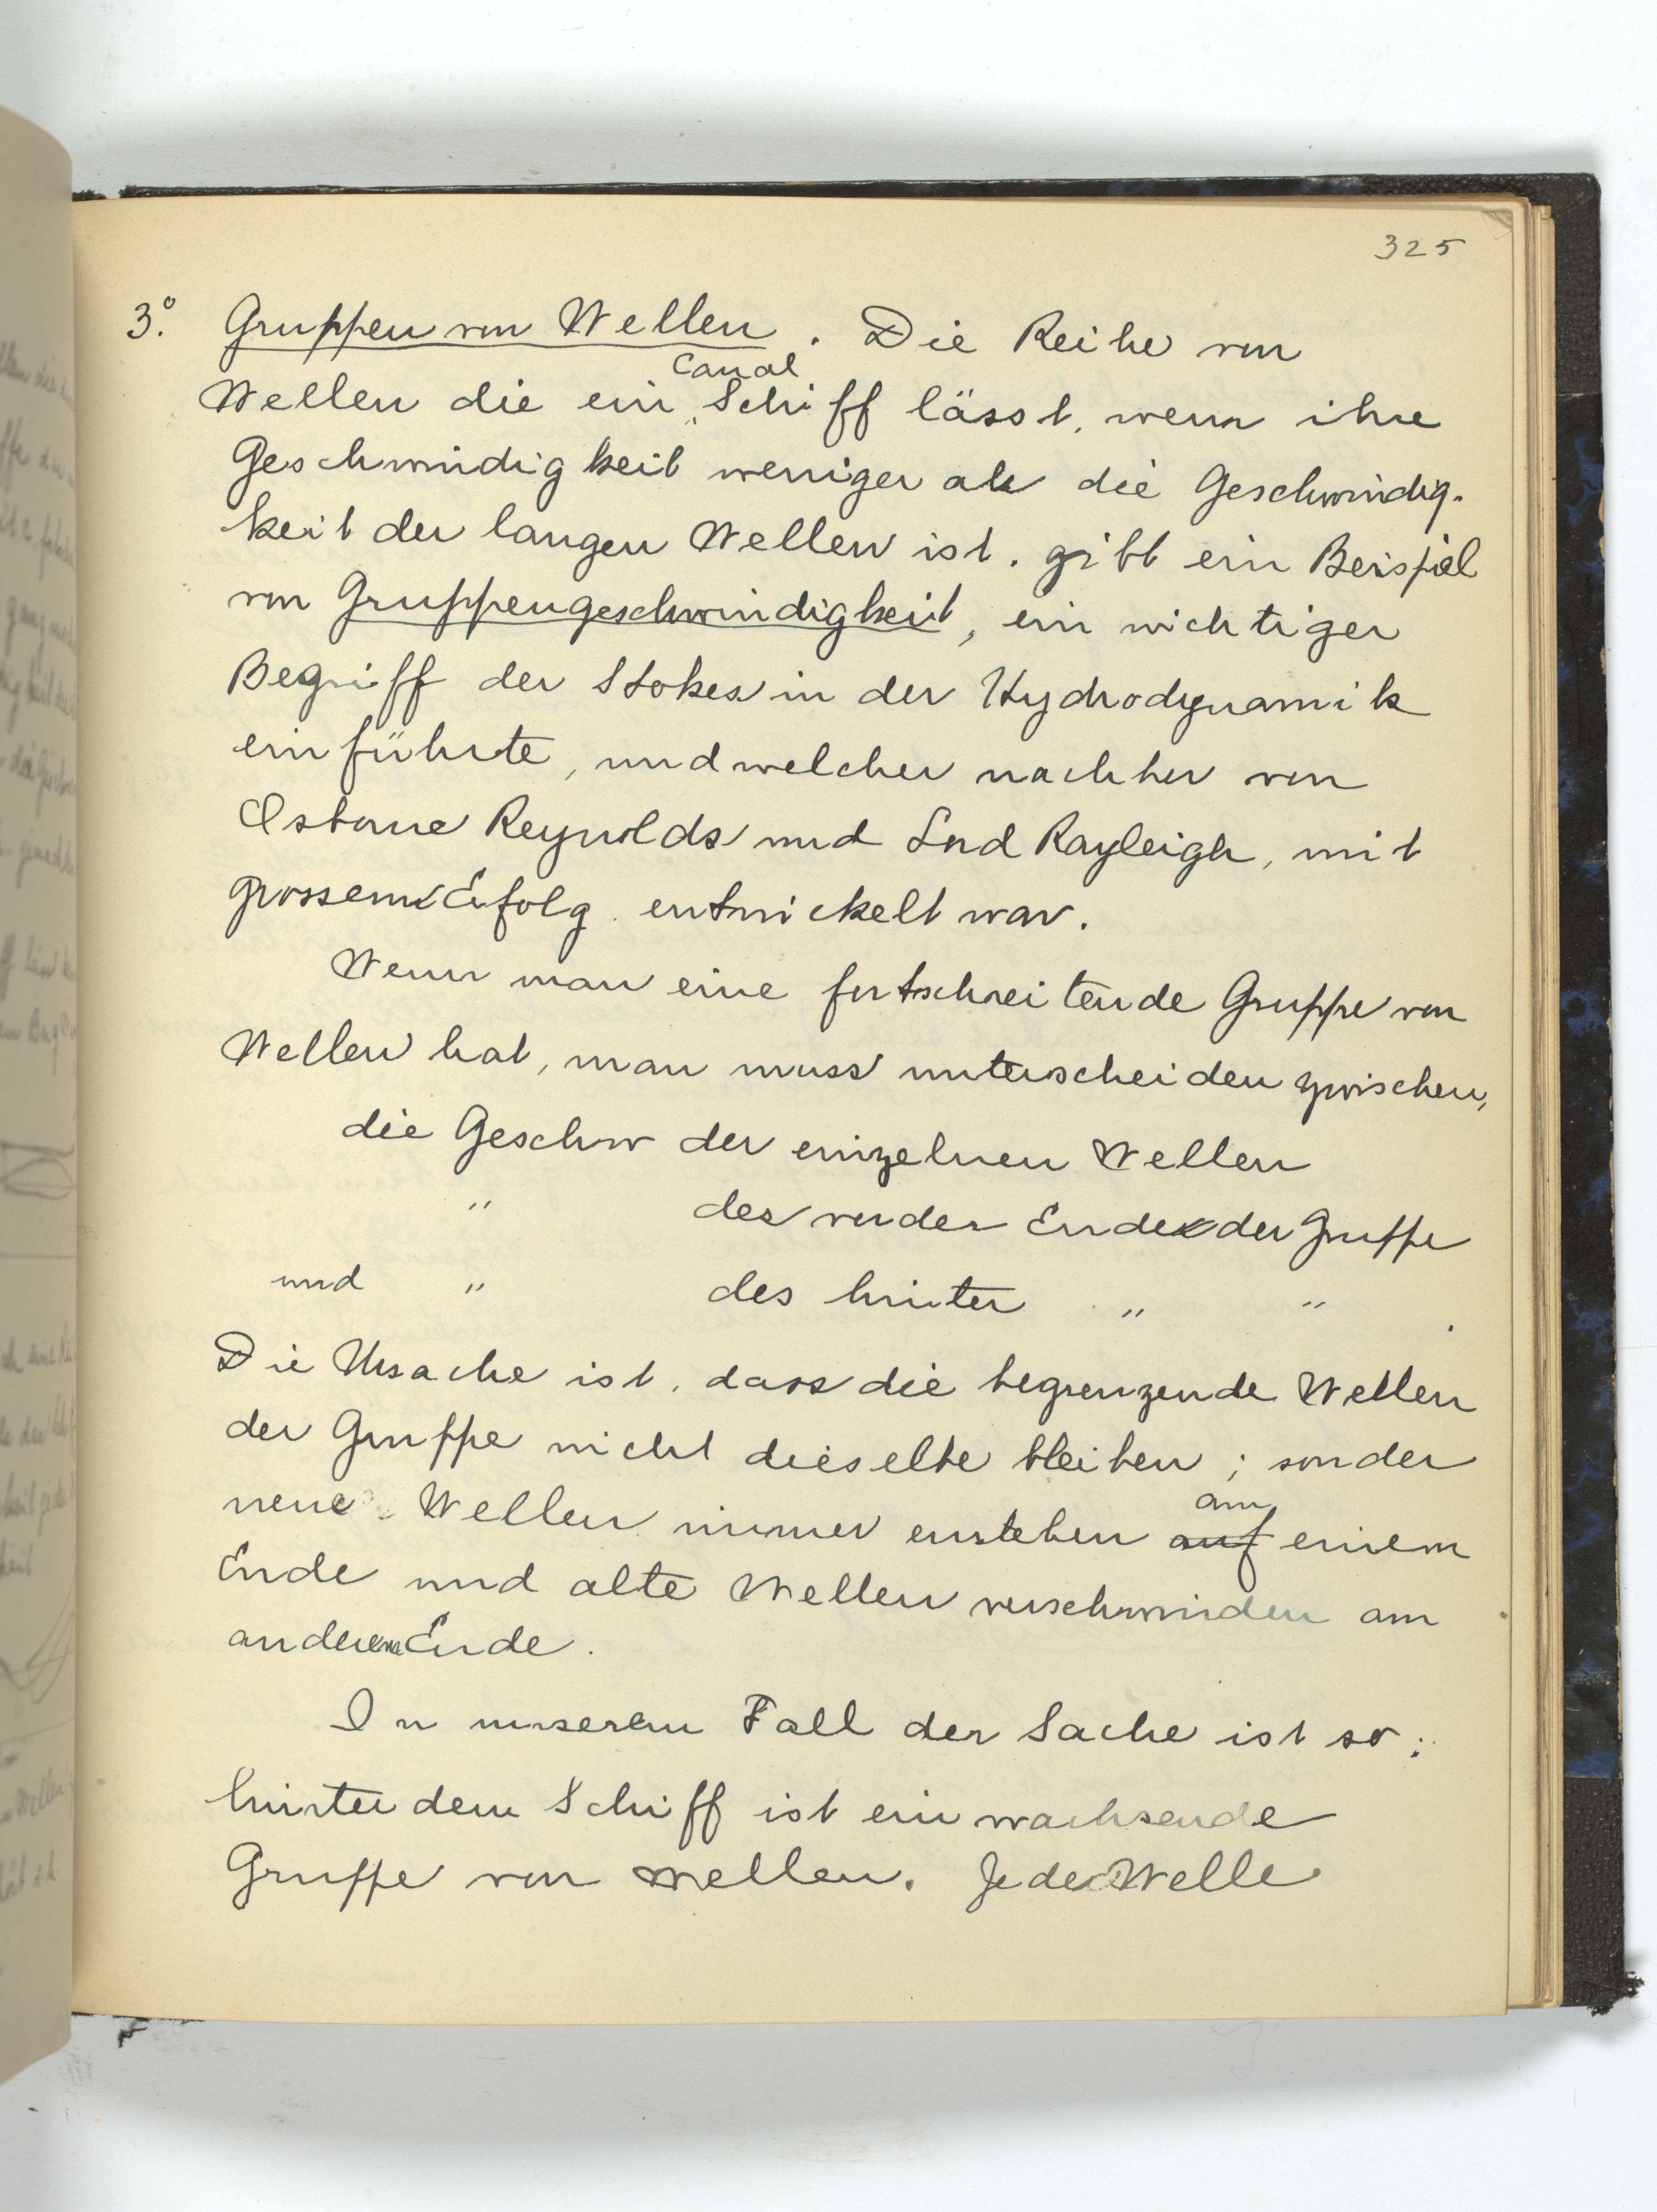 325
3.° Gruppen von Wellen. Die Reihe von
Canal
Wellen die ein Schiff lässt, wenn ihre
Geschwindigkeit weniger als die Geschwindig-
keit der langen Wellen ist, gibt ein Beispiel
von Gruppengeschwindigkeit, ein wichtiger
Begriff der Stokes in der Hydrodynamik
einführte, und welcher nachher von
Osborne Reynolds und Lord Rayleigh, mit
grossem Erfolg entwickelt war.
Wenn man eine fortschreitende Gruppe von
Wellen hat, man muss unterscheiden zwischen,
die Geschw der einzelnen Wellen
" des vorder Ende der Gruppe
und " des hinter " " .
Die Ursache ist, dass die begrenzende Wellen
der Gruppe nicht dieselbe bleiben; sonder
am
neue Wellen immer enstehen auf einem
Ende und alte Wellen verschwinden am
anderem Ende.
In unserem Fall der Sache ist so:
hinter dem Schiff ist ein wachsende
Gruppe von Wellen. Jede Welle